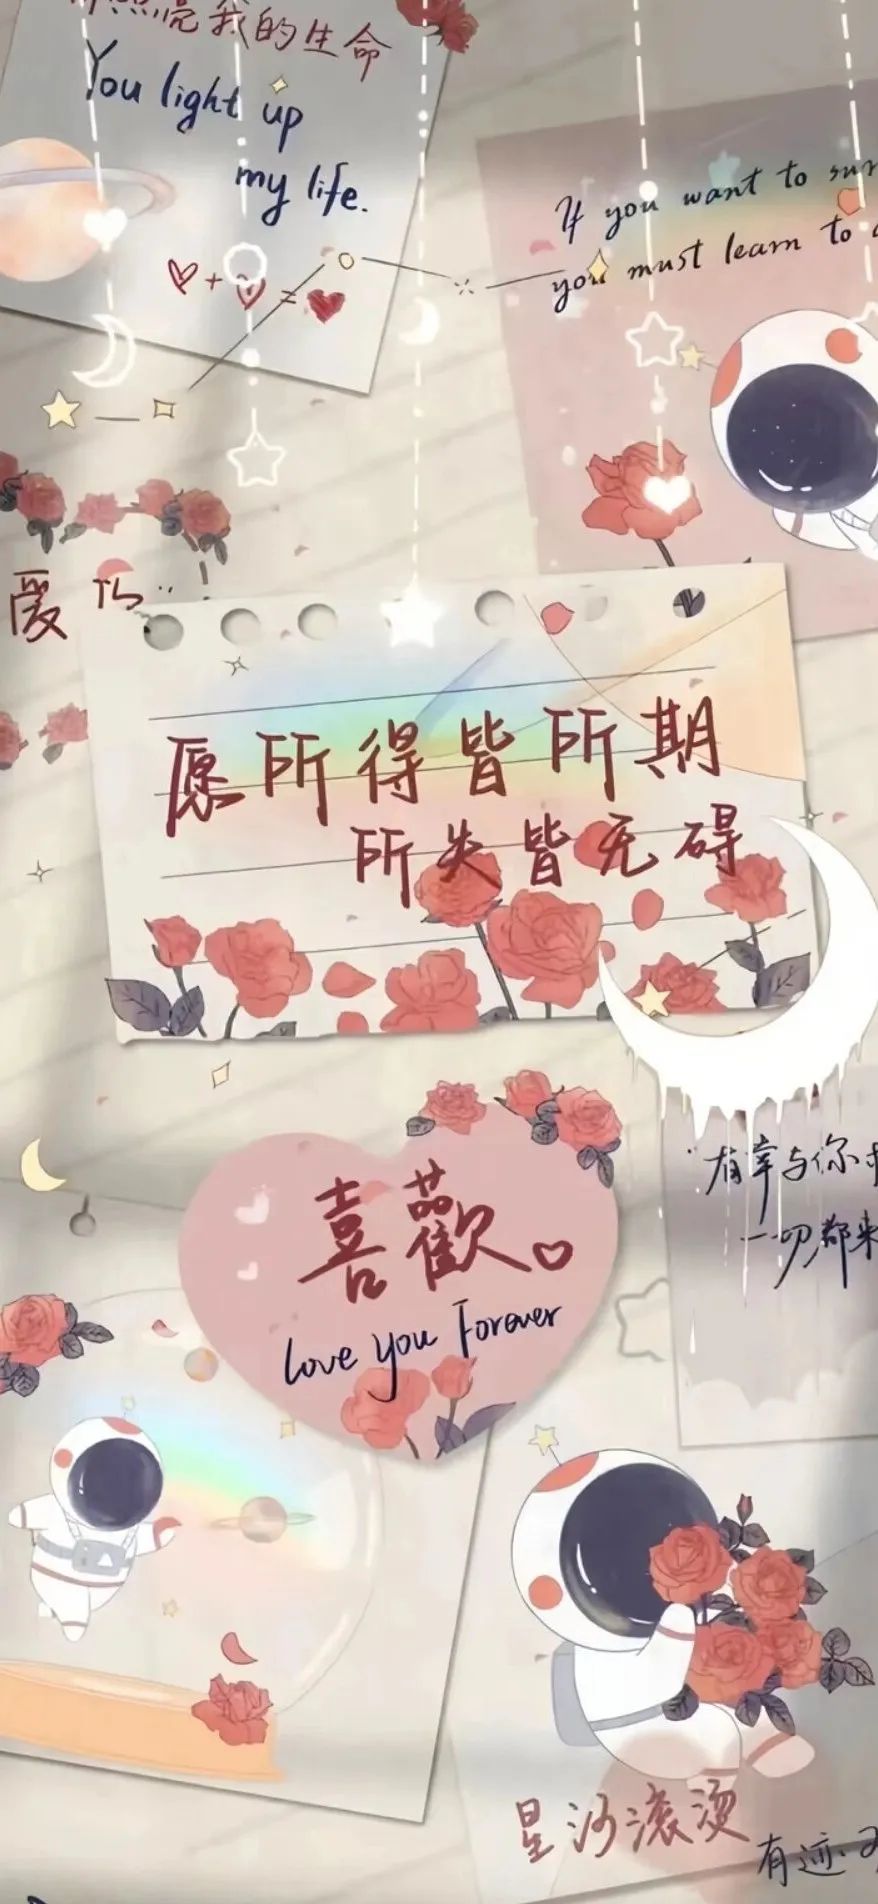 照亮我的生命
You light up
my life.
If you want to
you must learn to
愿所得皆所期
所失皆无碍
喜歡
Love you Forever
有幸与你
一切都来
星河滚烫
有迹